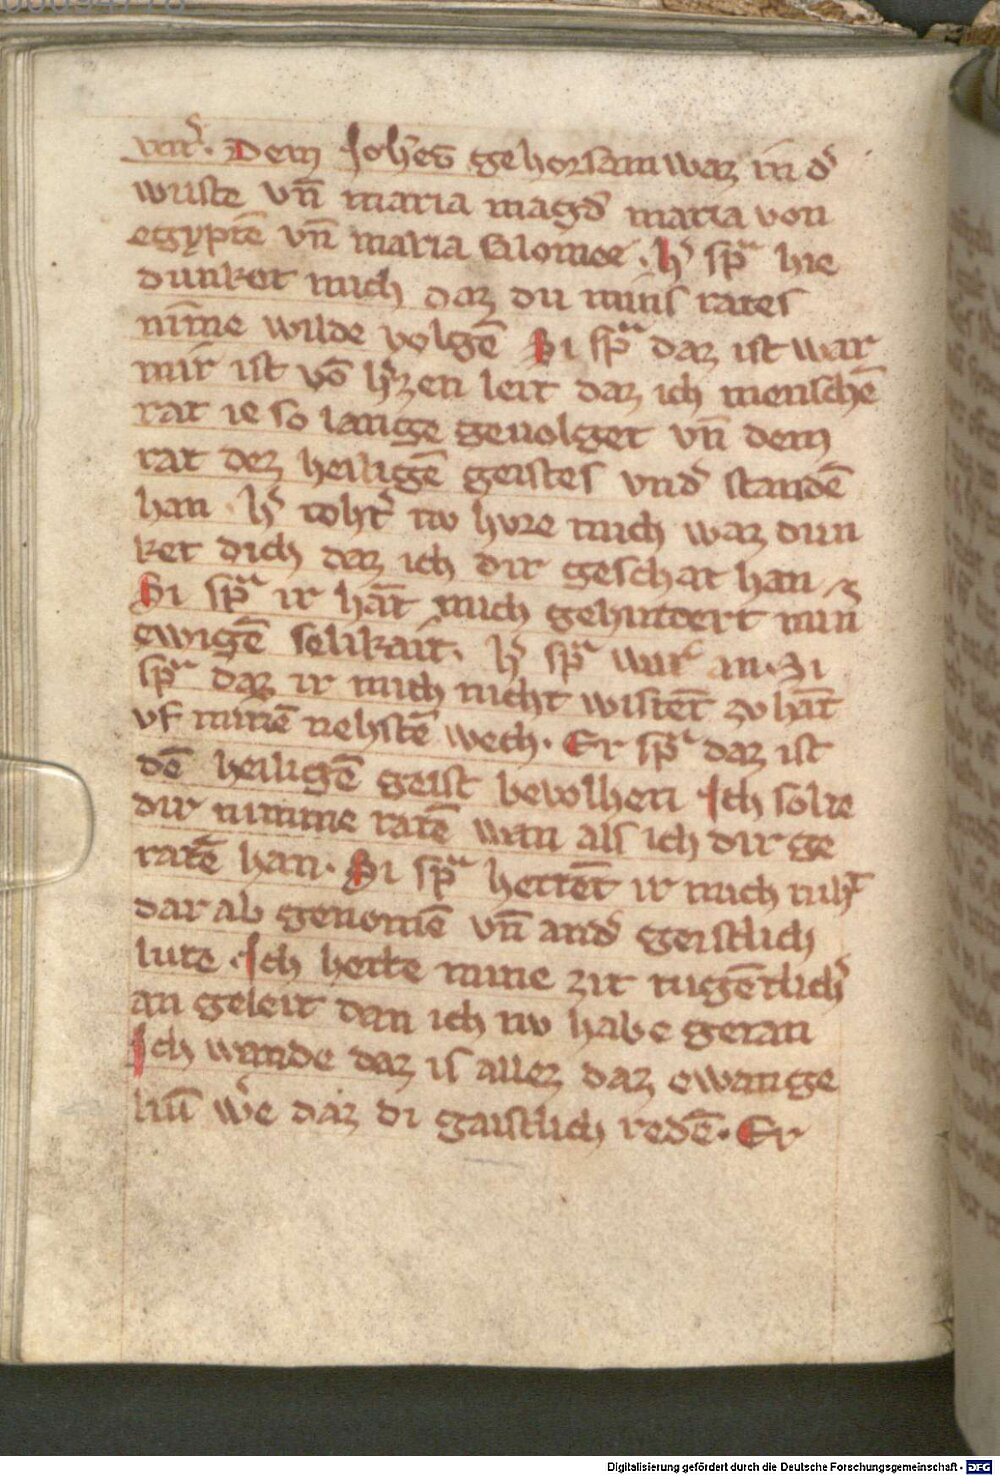 vat͛. Dem Joh̄es gehorsam waz in d͛
wuste vn̄ maria magd͛ maria von
egyptē vn̄ maria Salomee. h͛ spͣ hie
dunket mich daz du mins rates
nim̄e wilde volgē Si spͣ daz ist war
mir ist vō h͛zen leit daz ich menschē
rat ie so lange geuolget vn̄ dem
rat dez heiligē geistes vnd͛ standē
han. h͛ toht͛ nv hvre mich waz dun
ket dich daz ich dir geschat han
Si spͣ ir hāt mich gehindert min
ewigē selikait. h͛ spͣ war an. Si
spͣ daz ir mich nicht wistēt zv hāt
vf minē nehstē wech. Er spͣ daz ist
dē heiligē geist bevolhen Ich solte
dir nimme ratē wan als ich dir ge
ratē han. Si spͣ hettēt ir mich niht
dar ab genomē vn̄ and͛ geistlich
lute. Ich hette mine zit tugētlich͛
an geleit den ich nv habe getan
Ich wande daz is allez daz ewange
liū w͛e daz di gaistlich redē. Er
Digitalisierung gefördert durch die Deutsche Forschungsgemeinschaft - DFG